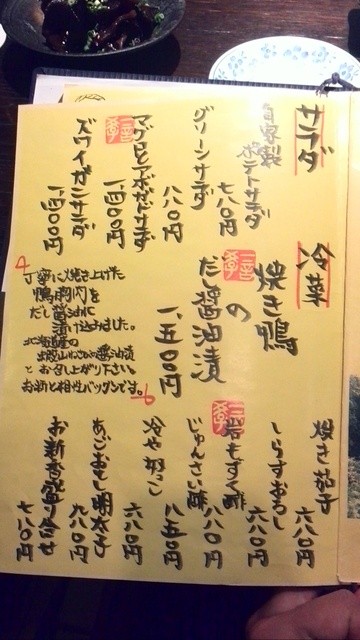 サラダ
自家製
ポテトサラダ
七八〇円
グリーンサラダ
八八〇円
マグロとアボガドサラダ
一、四〇〇円
ズワイガニサラダ
一、四〇〇円
冷菜
焼き鴨
の
だし醤油漬
一、五〇〇円
丁寧に焼き上げた
鴨胸肉を
だし醤油に
漬け込みました。
北海道産の
山わさび醤油漬
とお召し上がり下さい。
お酒と相性バツグンです。
焼き茄子
六八〇円
しらすおろし
六八〇円
岩もずく酢
八八〇円
じゅんさい酢
八五〇円
冷や奴
六八〇円
あごおとし明太子
九八〇円
お新香盛り合せ
七八〇円